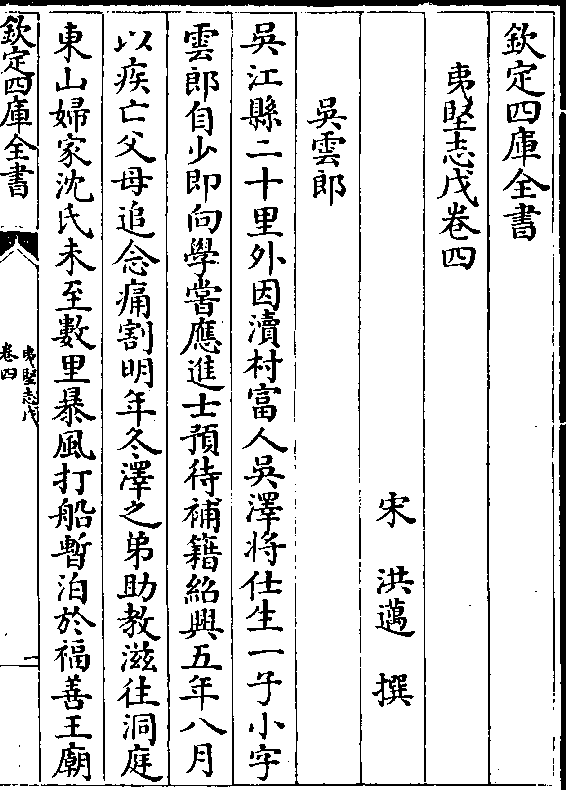 欽定四庫全書
夷堅志戊卷四
宋 洪邁 撰
吳雲郎
吳江縣二十里外因瀆村富人吳澤將仕生一子小字
雲郎自少即向學嘗應進士預待補籍紹興五年八月
以疾亡父母追念痛割明年冬澤之弟助教滋往洞庭
東山婦家沈氏未至數里暴風打船暫泊於福善王廟
欽定四庫全書
夷堅志戊
卷四
一